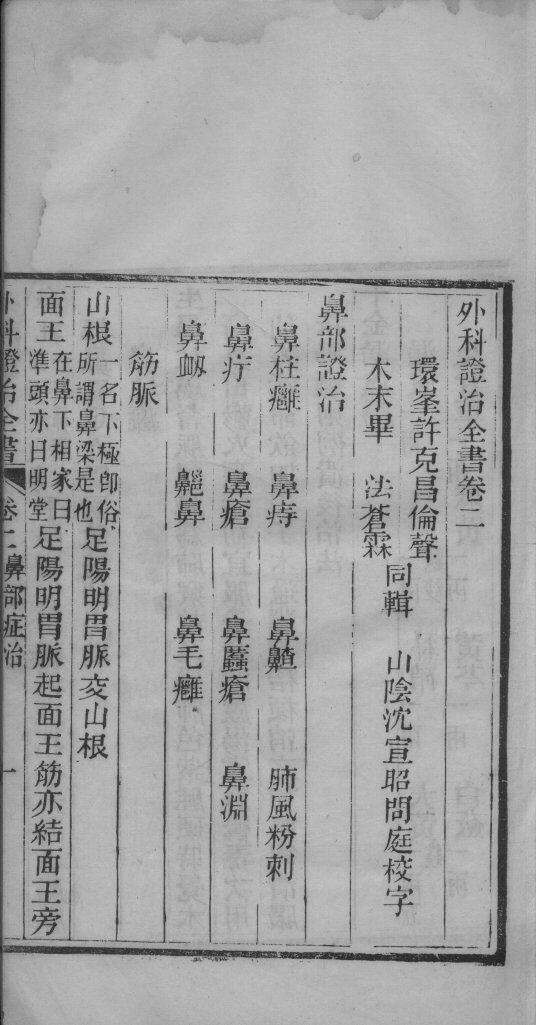 外科證治全書卷二
環峯許克昌倫聲
木末畢　法蒼霖
同輯　山陰沈宣昭問庭校字
鼻部證治
鼻柱癰　鼻痔　鼻齄　肺風粉刺
鼻疔　鼻瘡　鼻䘌瘡　鼻淵
鼻衂　齆鼻　鼻毛癰
筋脈
山根一名下極卽俗所謂鼻梁是也足陽明胃脈交山根
面王在鼻下相家曰準頭亦曰明堂足陽明胃脈起面王筋亦結面王旁
外科證治全書　卷二鼻部症治　一